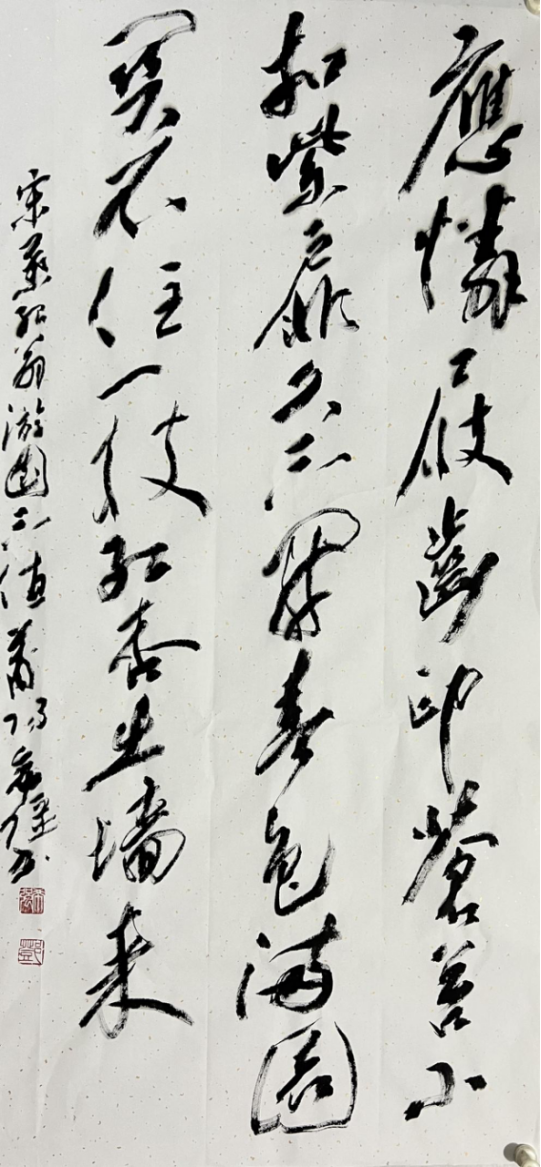 應憐屐齒印蒼苔小
扣柴扉久不開春色滿園
関不住一枝紅杏出墻来
宋葉紹翁游園不值莆陽书